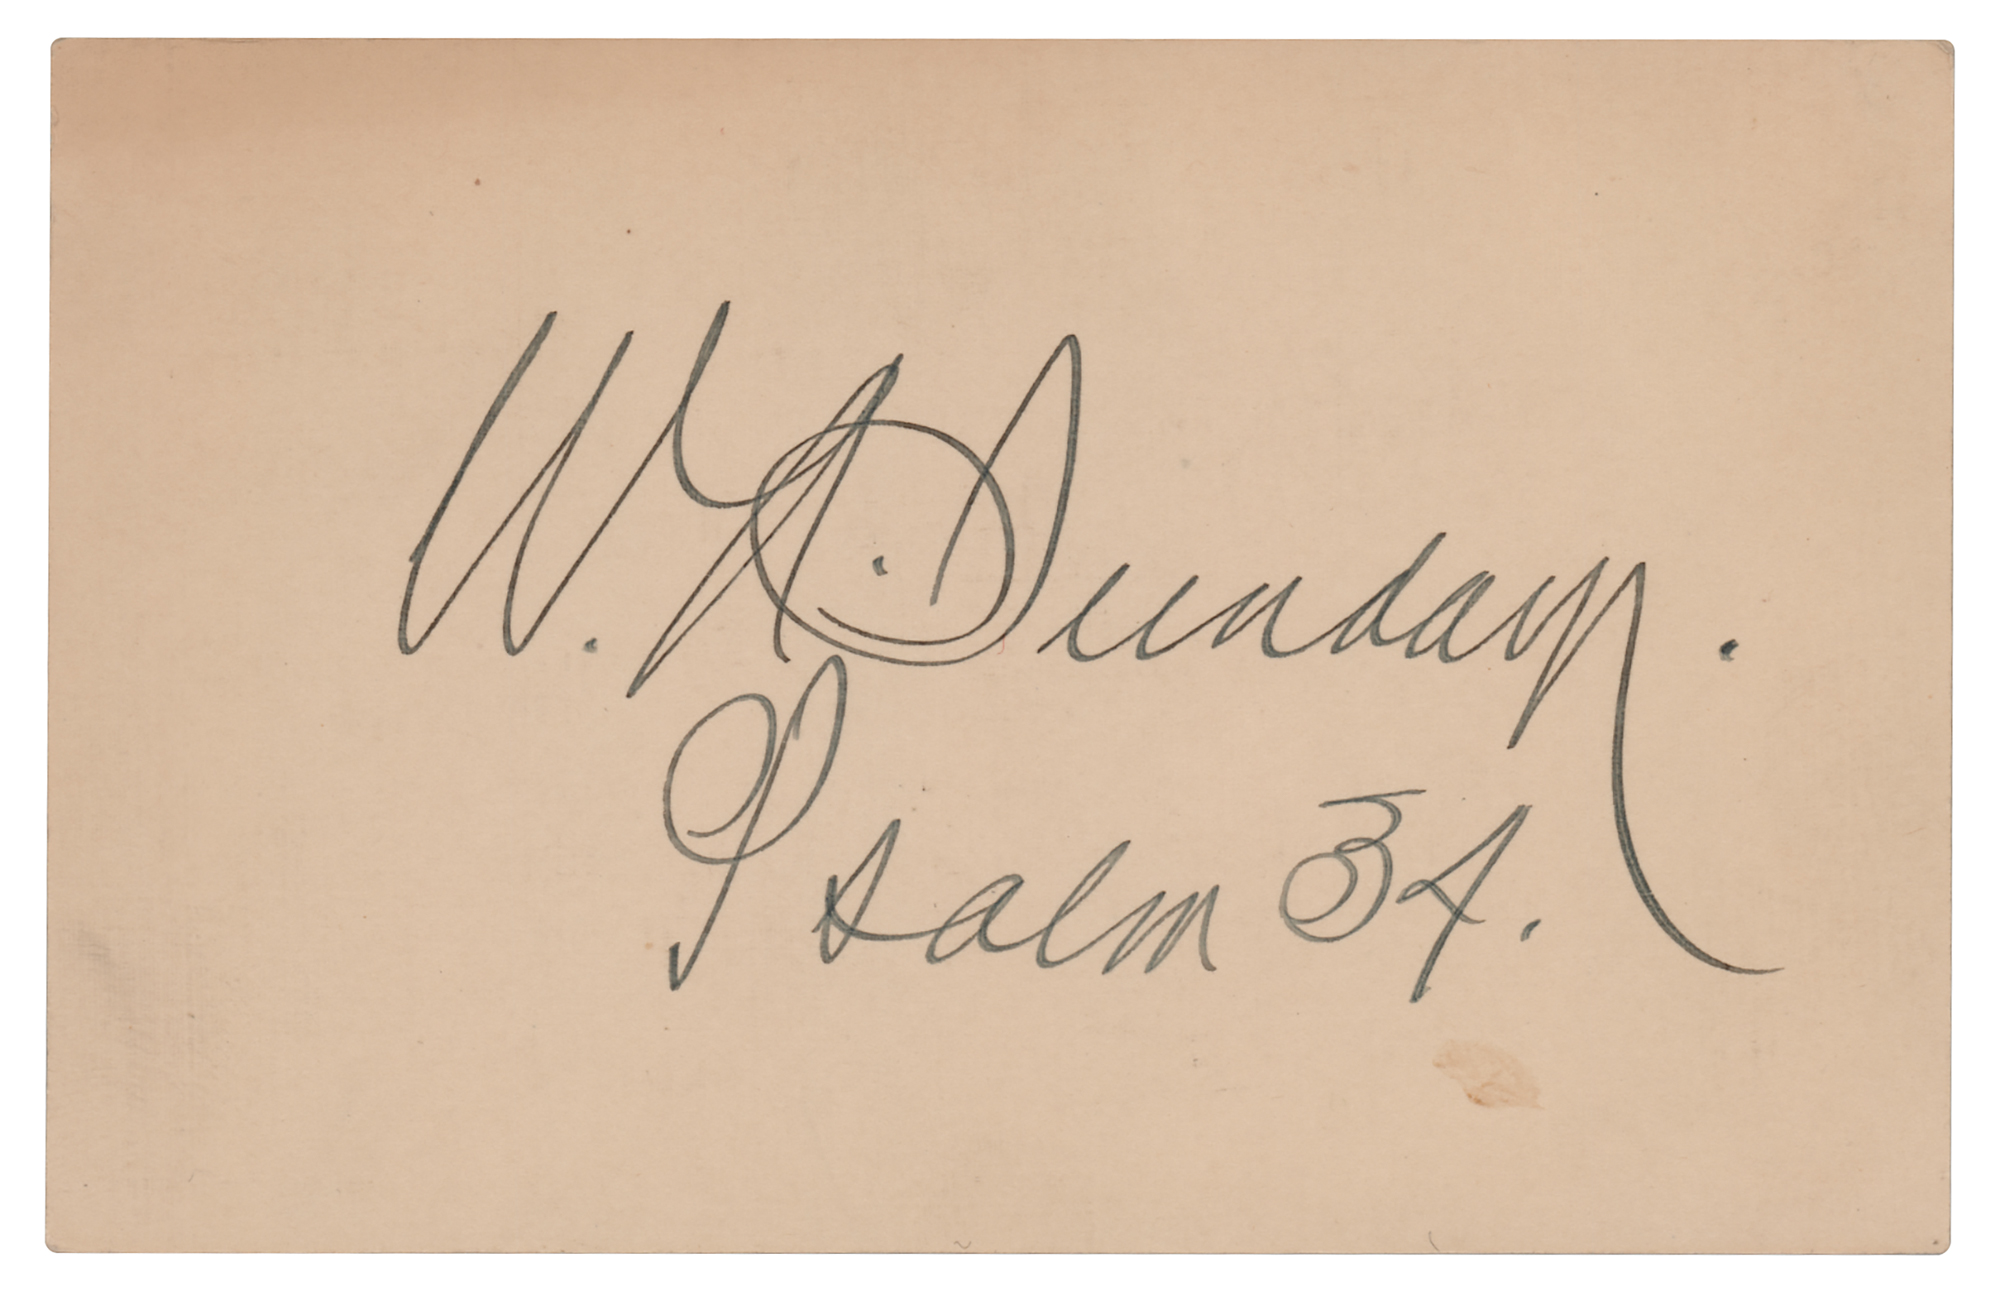 W. A. Sunday.
Psalm 34.